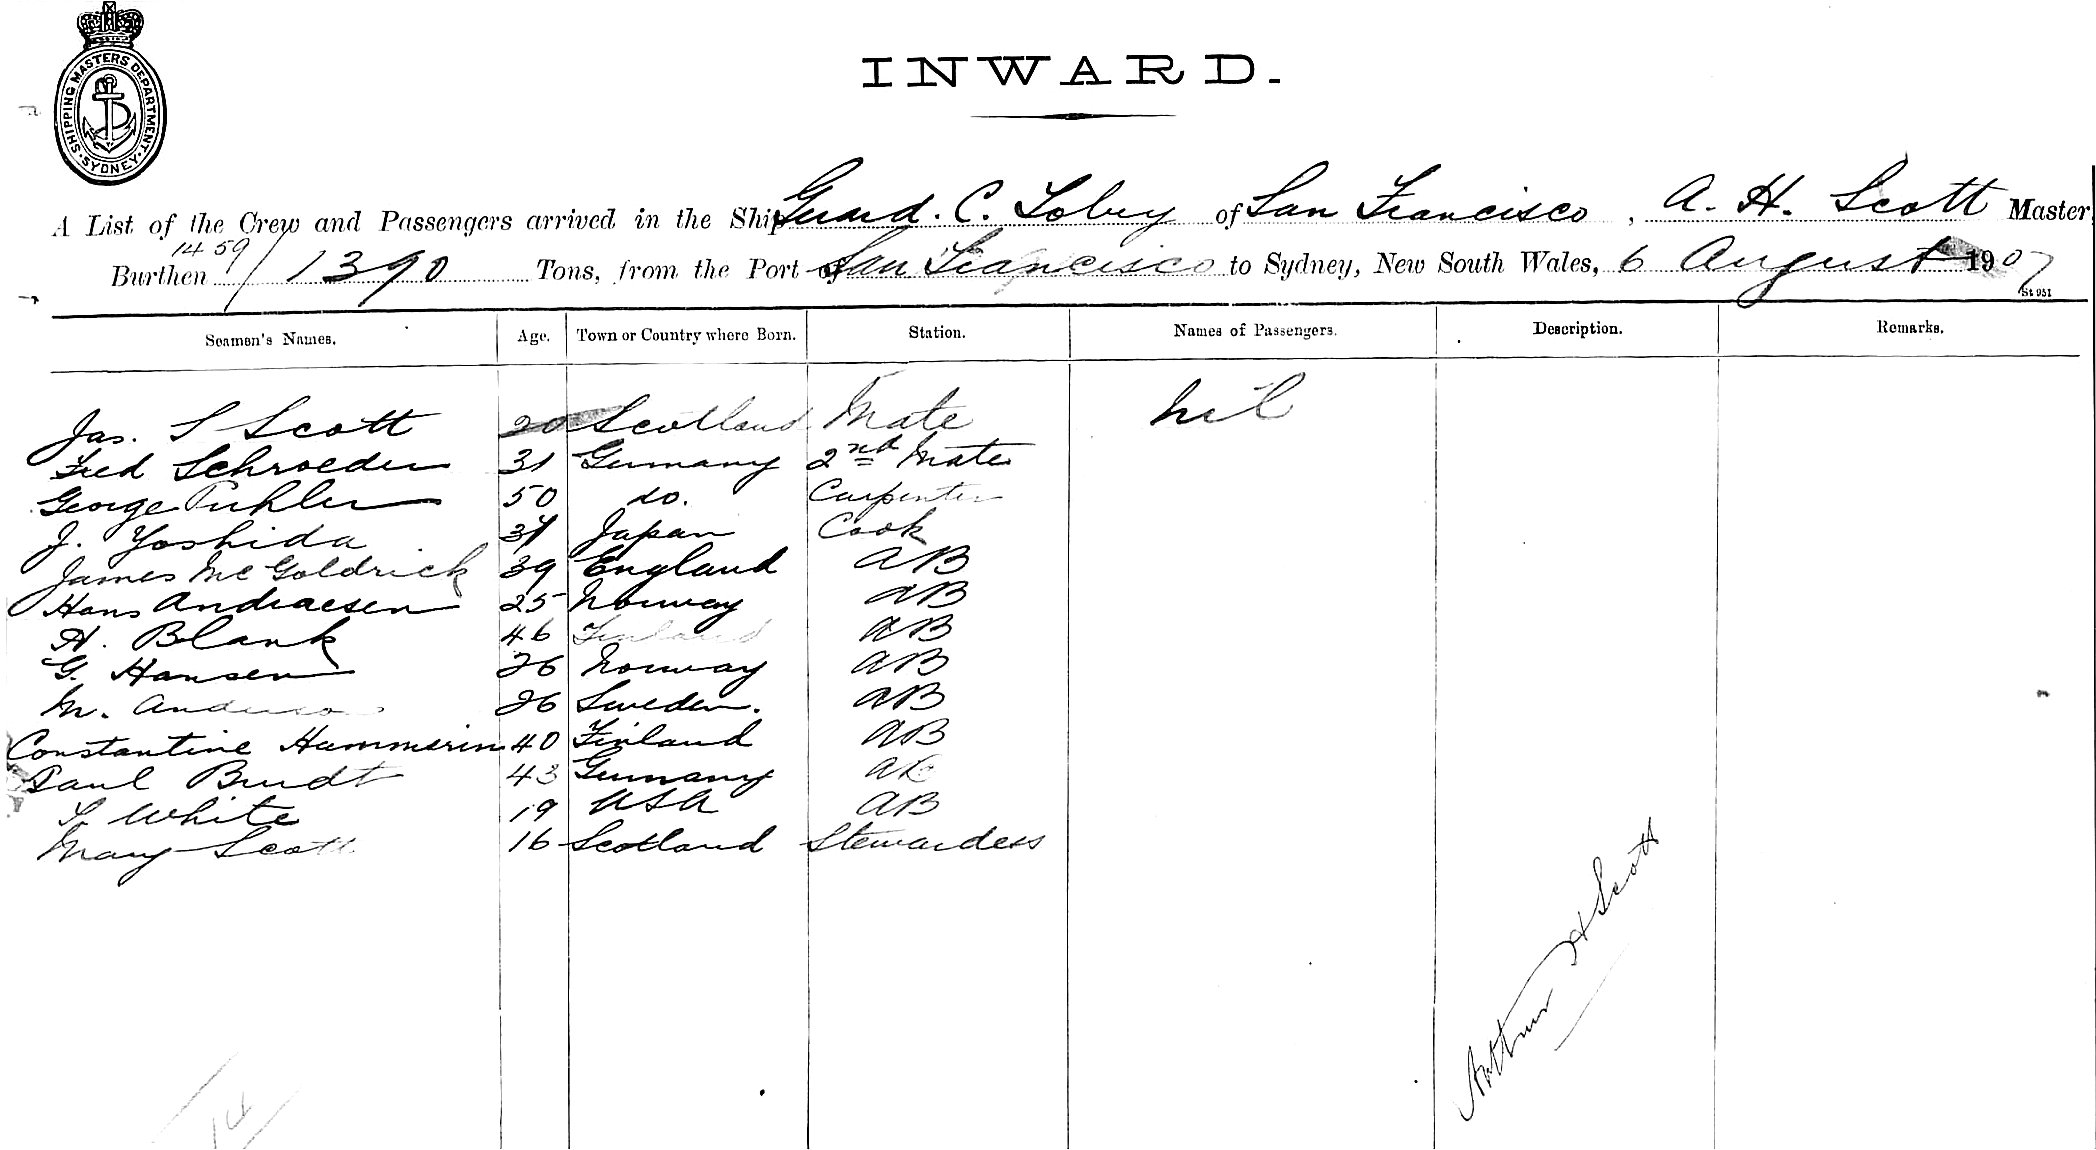 SHIPPING MASTERS DEPARTMENT. SYDNEY.
INWARD.
A List of the Crew and Passengers arrived in the Ship Gerard. C. Tobey of San Francisco, A. H. Scott Master,
1459
Burthen / 1390 Tons, from the Port of San Francisco to Sydney, New South Wales, 6 August 1907
St 951
Seamen's Names. Age. Town or Country where Born. Station. Names of Passengers. Description. Remarks.
Jas. S Scott 20 Scotland Mate nil
Fred Schroeder 31 Germany 2nd Mate
George 50 do. Carpenter
J. Yoshida Japan Cook
James McGoldrick 39 England AB
Hans Andraesen 25 Norway AB
H. Blank 46 Finland AB
G. Hansen 26 Norway AB
M. Anderson 26 Sweden. AB
Constantine Hammerin 40 Finland AB
Paul Brudt 43 Germany AB
White 19 USA AB
Mary Scott 16 Scotland Stewardess
Arthur H Scott
14